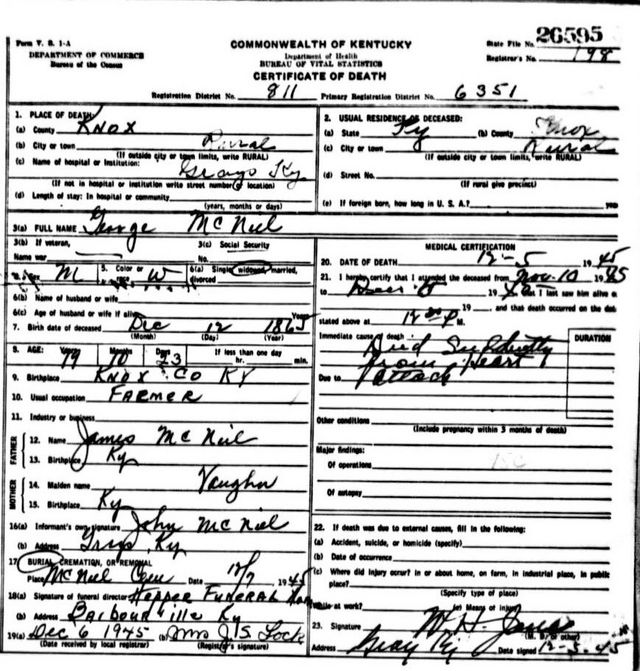 Form V. S. 1-A
DEPARTMENT OF COMMERCE
Bureau of the Census
COMMONWEALTH OF KENTUCKY
Department of Health
BUREAU OF VITAL STATISTICS
CERTIFICATE OF DEATH
State File No. 26595
Registrar's No. 198
Registration District No. 811 Primary Registration District No. 6351
1. PLACE OF DEATH
(a) County Knox
(b) City or town Rural
(If outside city or town limits, write RURAL)
(c) Name of hospital or institution: Grays Ky
(If not in hospital or institution write street number or location)
(d) Length of stay: In hospital or community
(years, months or days)
2. USUAL RESIDENCE OF DECEASED:
(a) State Ky (b) County Knox
(c) City or town Rural
(If outside city or town limits, write RURAL)
(d) Street No.
(If rural give precinct)
(e) If foreign born, how long in U. S. A.?
3(a) FULL NAME George McNiel
3(b) If veteran, 3(c) Social Security
Name war No.
Sex M 5. Color or W 6(a) Single, widowed, married,
divorced
6(b) Name of husband or wife
6(c) Age of husband or wife if alive Years
7. Birth date of deceased Dec 12 1865
(Month) (Day) (Year)
8. AGE: Years Months Days If less than one day
79 10 23 hr. min.
9. Birthplace Knox Co Ky
10. Usual occupation Farmer
11. Industry or business
FATHER
12. Name James McNeil
13. Birthplace Ky
MOTHER
14. Maiden name Vaughn
15. Birthplace Ky
16(a) Informant's own signature John McNiel
(b) Address Grays, Ky
17 BURIAL, CREMATION, OR REMOVAL
Place McNiel Cem Date 12/7 1945
18(a) Signature of funeral director Hopper Funeral Home
(b) Address Barbourville Ky
19(a) Dec 6 1945 (b) Mrs J. S. Lock
(Date received by local registrar) (Registrar's signature)
MEDICAL CERTIFICATION
20. DATE OF DEATH 12-5 1945
21. I hereby certify that I attended the deceased from Nov. 10 1945
to Dec 5 19 that I last saw him alive
19 , and that death occurred on the date
stated above at 12 P M.
Immediate cause of death Died Suddently
from Heart
Due to attack
DURATION
Other conditions
(Include pregnancy within 3 months of death)
Major findings:
Of operations
Of autopsy
22. If death was due to external causes, fill in the following:
(a) Accident, suicide, or homicide (specify)
(b) Date of occurrence
(c) Where did injury occur? In or about home, on farm, in industrial place, in public
place?
(Specify type of place)
While at work? (e) Means of injury
23. Signature W. H.
Address Gray Ky Date signed 12-5-45